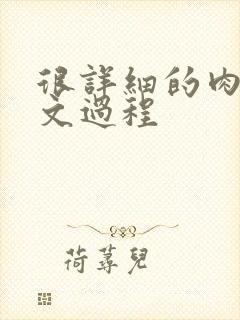 很詳細的肉
文過程
荷蕁兒